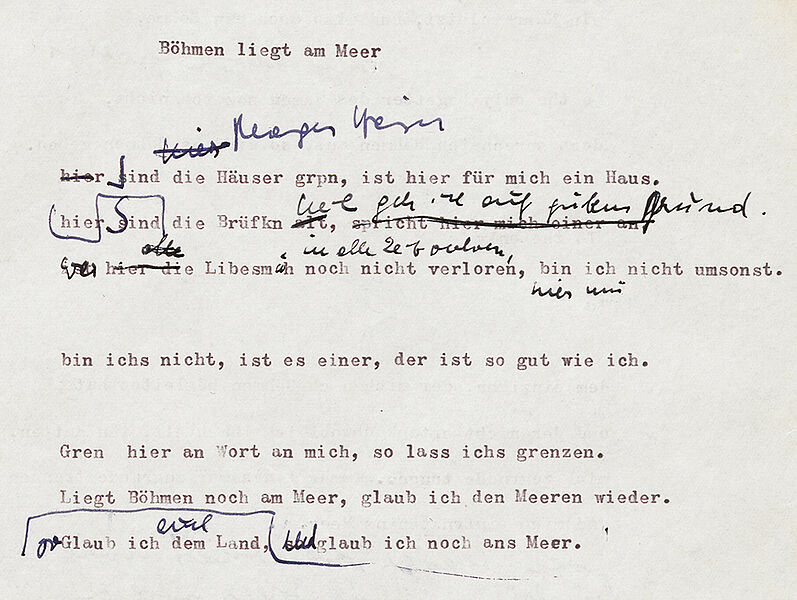 Böhmen liegt am Meer
hier
hier sind die Häuser grpn, ist hier für mich ein Haus.
geh ich auf gutem Grund.
hier sind die Brüfkn alt, spricht hier mich einer an
in alle Zeit verloren,
hier die Libesmüh noch nicht verloren, bin ich nicht umsonst.
bin ichs nicht, ist es einer, der ist so gut wie ich.
Gren hier an Wort an mich, so lass ichs grenzen.
Liegt Böhmen noch am Meer, glaub ich den Meeren wieder.
Glaub ich dem Land, glaub ich noch ans Meer.